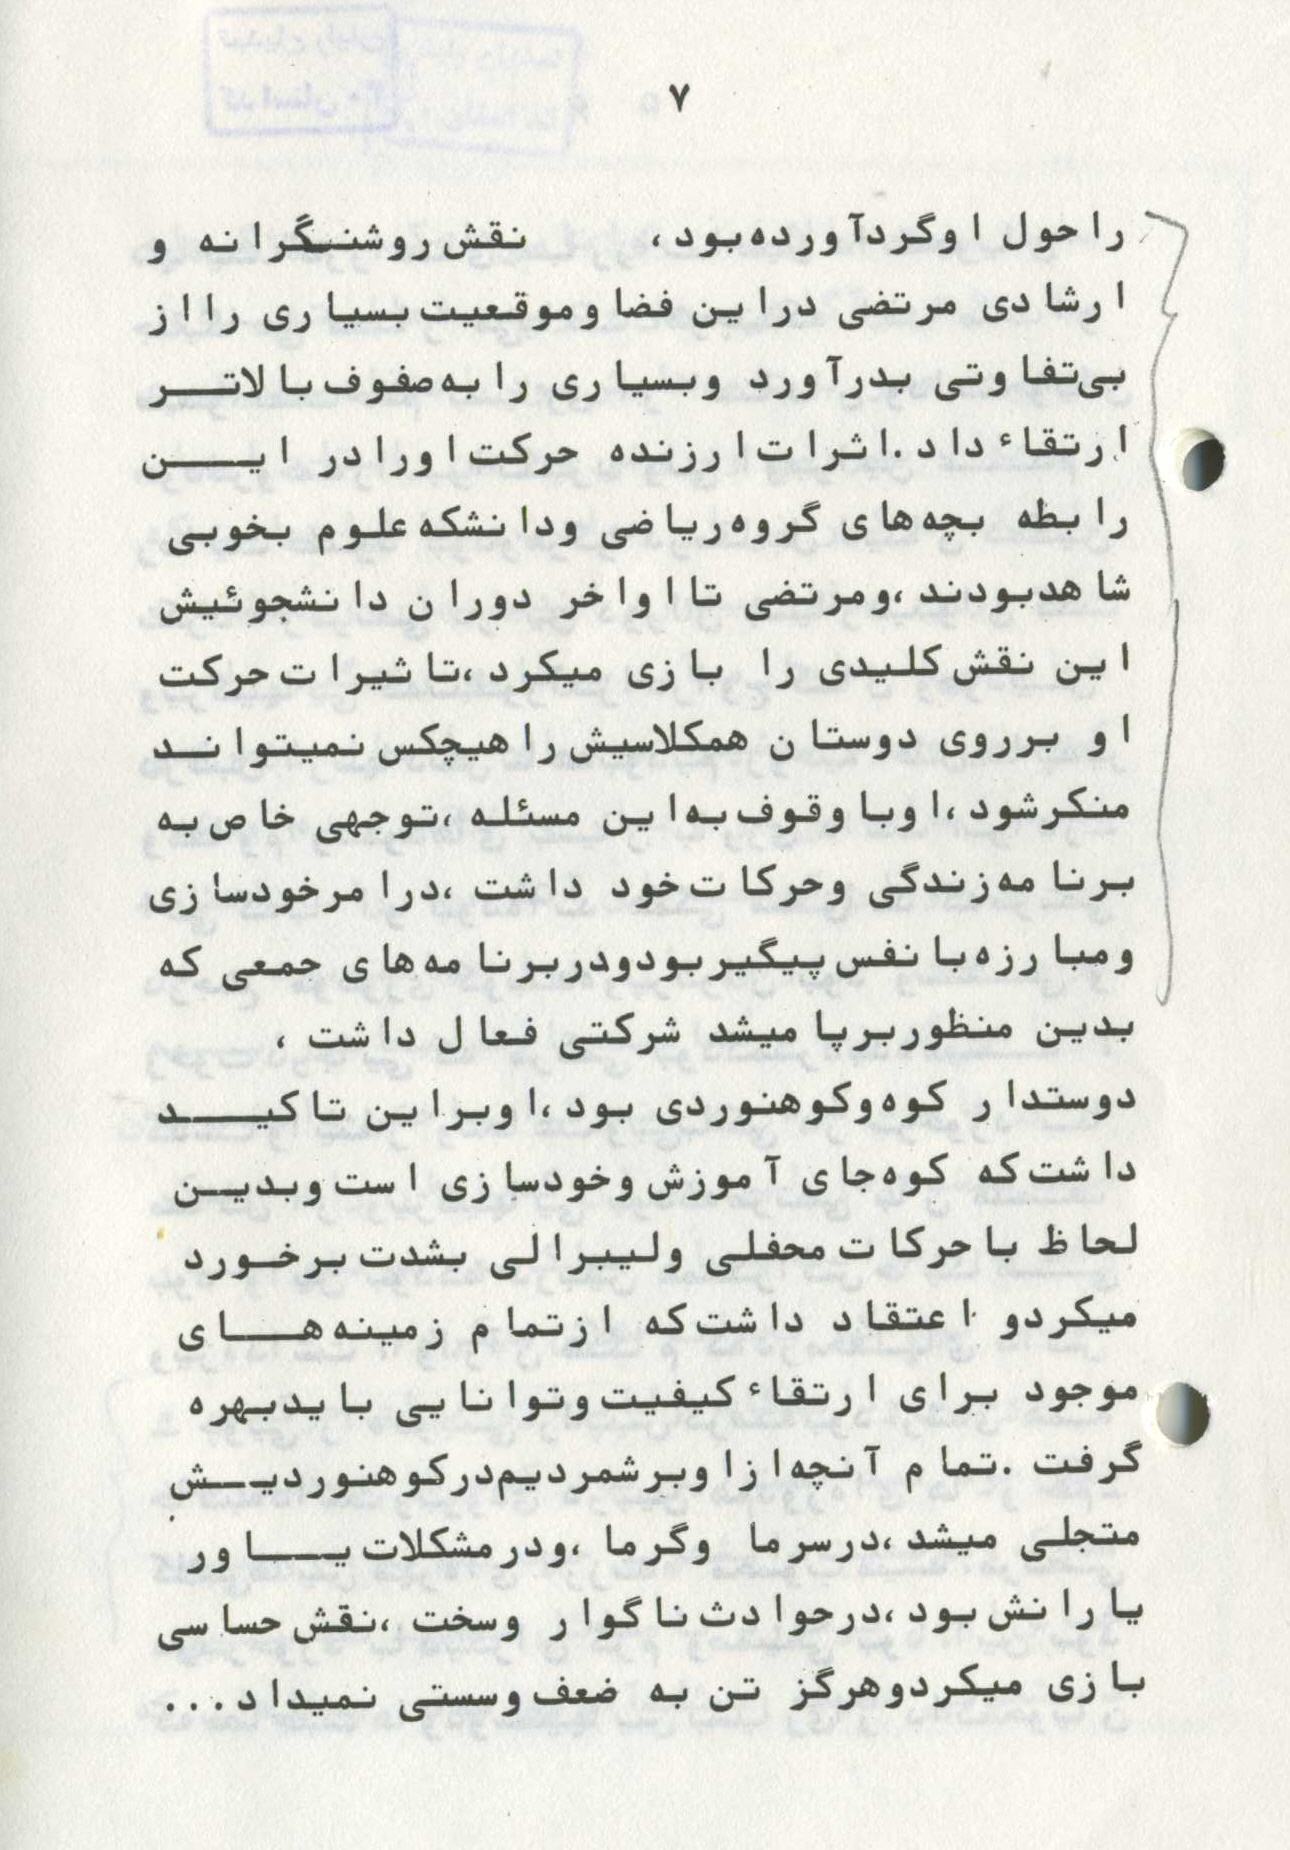 ۷
را حول او گردآورده بود، نقش روشنگرانه و
ارشادی مرتضی دراین فضا وموقعیت بسیاری را از
بی‌تفاوتی بدرآورد وبسیاری را به صفوف بالاتر
ارتقاء داد. اثرات ارزنده حرکت اورا در این
رابطه بچه‌های گروه ریاضی ودانشکه علوم بخوبی
شاهدبودند، ومرتضی تا اواخر دوران دانشجوئیش
این نقش کلیدی را بازی میکرد، تاثیرات حرکت
او برروی دوستان همکلاسیش را هیچکس نمیتواند
منکرشود، اوبا وقوف به این مسئله، توجهی خاص به
برنامه زندگی وحرکات خود داشت، درا مرخودسازی
ومبارزه با نفس پیگیر بودودر برنامه‌های جمعی که
بدین منظور برپا میشد شرکتی فعال داشت،
دوستدار کوه وکوهنوردی بود، اوبراین تاکید
داشت که کوه جای آموزش وخودسازی است وبدین
لحاظ با حرکات محفلی ولیبرالی بشدت برخورد
میکردو اعتقاد داشت که ازتمام زمینه‌های
موجود برای ارتقاء کیفیت وتوانایی بایدبهره
گرفت. تمام آنچه ازاوبرشمردیم درکوهنوردیش
متجلی میشد، درسرما وگرما، ودرمشکلات یاور
یارانش بود، درحوادث ناگوار وسخت، نقش حساسی
بازی میکردوهرگز تن به ضعف وسستی نمیداد...